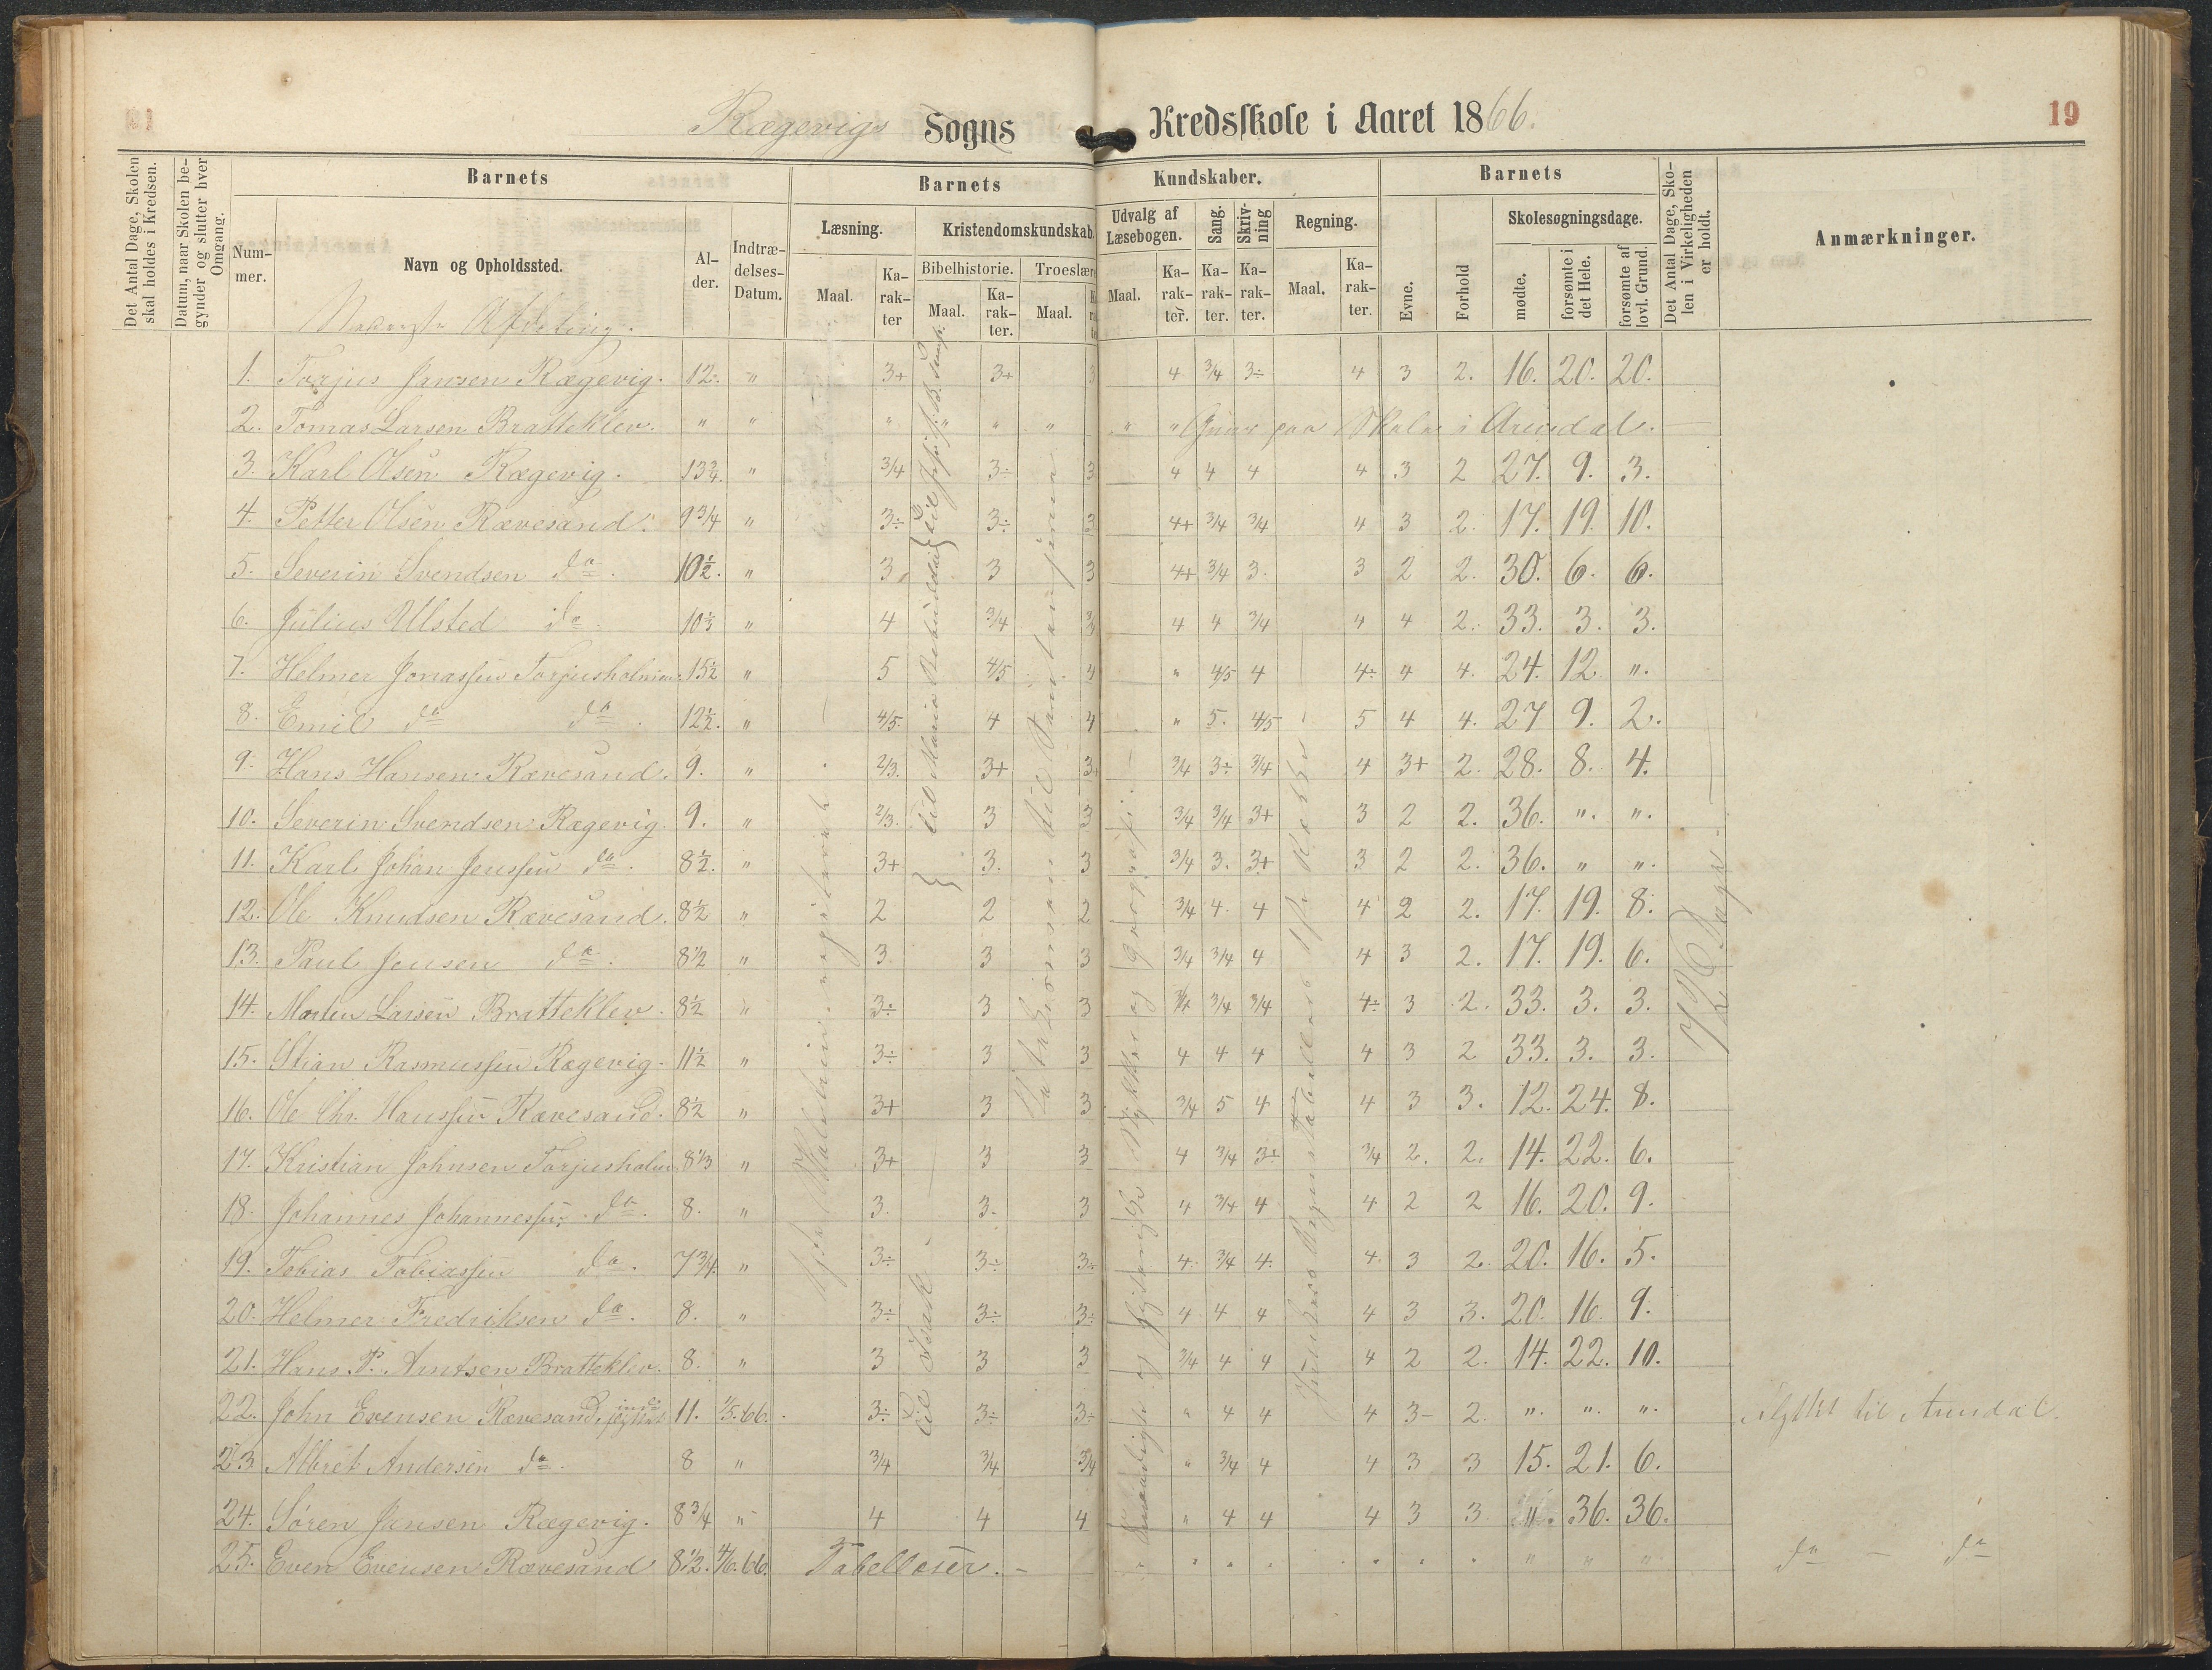 Rægevigs Sogns Kredsskole i Aaret 1866.
19
Det Antal Dage, Skolen skal holdes i Kredsen.
Datum, naar Skolen begynder og slutter hver Omgang.
Barnets
Nummer.
Navn og Opholdssted.
Alder.
Indtrædelses-Datum.
Barnets Kundskaber.
Læsning.
Maal.
Karakter
Kristendomskundskab.
Bibelhistorie.
Maal.
Karakter.
Troeslære
Maal.
Udvalg af Læsebogen.
Maal.
Karakter.
Sang.
Karakter.
Skrivning
Karakter.
Regning.
Maal.
Karakter.
Barnets
Evne.
Forhold
Skolesøgningsdage.
mødte.
forsømte i det Hele.
forsømte af lovl. Grund.
Det Antal Dage, Skolen i Virkeligheden er holdt.
Anmærkninger.
Afdeling.
1. Torjus Jansen Rægevig. 12. " 3+ 3+ 3 4 3/4 3÷ 4 3 2. 16. 20. 20.
2. Tomas Larsen Bratteklev. " " " " " " " " Skole i Arendal.
3. Karl Olsen Rægevig. 13 3/4. " 3/4 3÷ 3 4 4 4 4 3 2 27. 9. 3.
4. Petter Olsen Rævesand. 9 3/4 " 3÷ 3÷ 3 4+ 3/4 3/4 4 3 2. 17. 19. 10.
5. Severin Svendsen do. 10 1/2. " 3 3 3 4+ 3/4 3. 3 2 2. 30. 6. 6.
6. Julius Ulsted do. 10 1/3 " 4 3/4 3/3 4 4 3/4 4 4 2. 33. 3. 3.
7. Helmer Jonassen Torjusholmen. 15 1/2 " 5 4/5 4 " 4/5 4 4÷ 4 4. 24. 12 ".
8. Emil do do. 12 1/2. " 4/5. 4 4 " 5. 4/5 5 4 4. 27 9. 2.
9. Hans Hansen Rævesand. 9. " 2/3. 3+ 3+ 3/4 3÷ 3/4 4 3+ 2. 28. 8. 4.
10. Severin Svendsen Rægevig. 9. " 2/3. 3 3 3/4 3/4 3+ 3 2 2. 36. ". ".
11. Karl Johan Jenssen do. 8 1/2. " 3+ 3. 3 3/4 3. 3+ 3 2 2. 36. " ".
12. Ole Knudsen Rævesand. 8 1/2 " 2 2 2 3/4 4. 4 4 2 2. 17. 19. 8.
13. Paul Jensen do. 8 1/2 " 3 3 3 3/4 3/4 4 4 3 2. 17. 19. 6.
14. Morten Larsen Bratteklev. 8 1/2 " 3÷ 3 3 3/4 3/4 3/4 4÷ 3 2. 33. 3. 3.
15. Stian Rasmussen Rægevig. 11 1/2 " 3÷ 3 3 4 4 4 4 3 2 33. 3. 3.
16. Ole Chr. Hanssen Rævesand. 8 1/2 " 3+ 3 3 3/4 5 4 4 3 3. 12. 24. 8.
17. Kristian Johnsen Torjusholm. 8 1/3 " 3+ 3 3 4 3/4 3÷ 3/4 2. 2. 14. 22. 6.
18. Johannes Johannessen do. 8. " 3. 3. 3 4 3/4 4 4 2 2 16. 20. 9.
19. Tobias Tobiassen do. 7 3/4. " 3÷ 3÷ 3÷ 4. 3/4 4. 4. 3 2. 20. 16. 5.
20. Helmer Fredriksen do. 8. " 3÷ 3÷ 3÷ 4. 4 4 4 3 3. 20. 16. 9.
21. Hans P. Arntsen Bratteklev. 8. " 3 3 3 3/4 4 4 4 2 2. 14. 22. 10.
22. John Evensen Rævesand 11. 1/5.66. 3÷ 3÷ 3÷ " 4 4 4 3- 2. ". ". ". flyttet til Arendal.
23. Albret Andersen do. 8 " 3/4 3/4 3/4 " 3/4 4 4 3 3 15. 21. 6.
24. Søren Jansen Rægevig. 8 3/4 " 4 4 4 " 4 4 4 3 3 ". 36. 36.
25. Even Evensen Rævesand 8 1/2. 4/6.66. Tabellæser. — " " " do — do
36 Dage.